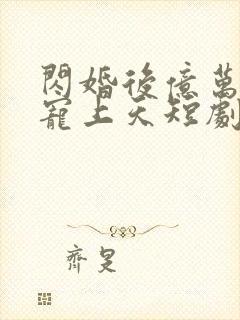 閃婚後億萬
寵上天短劇
齊旻